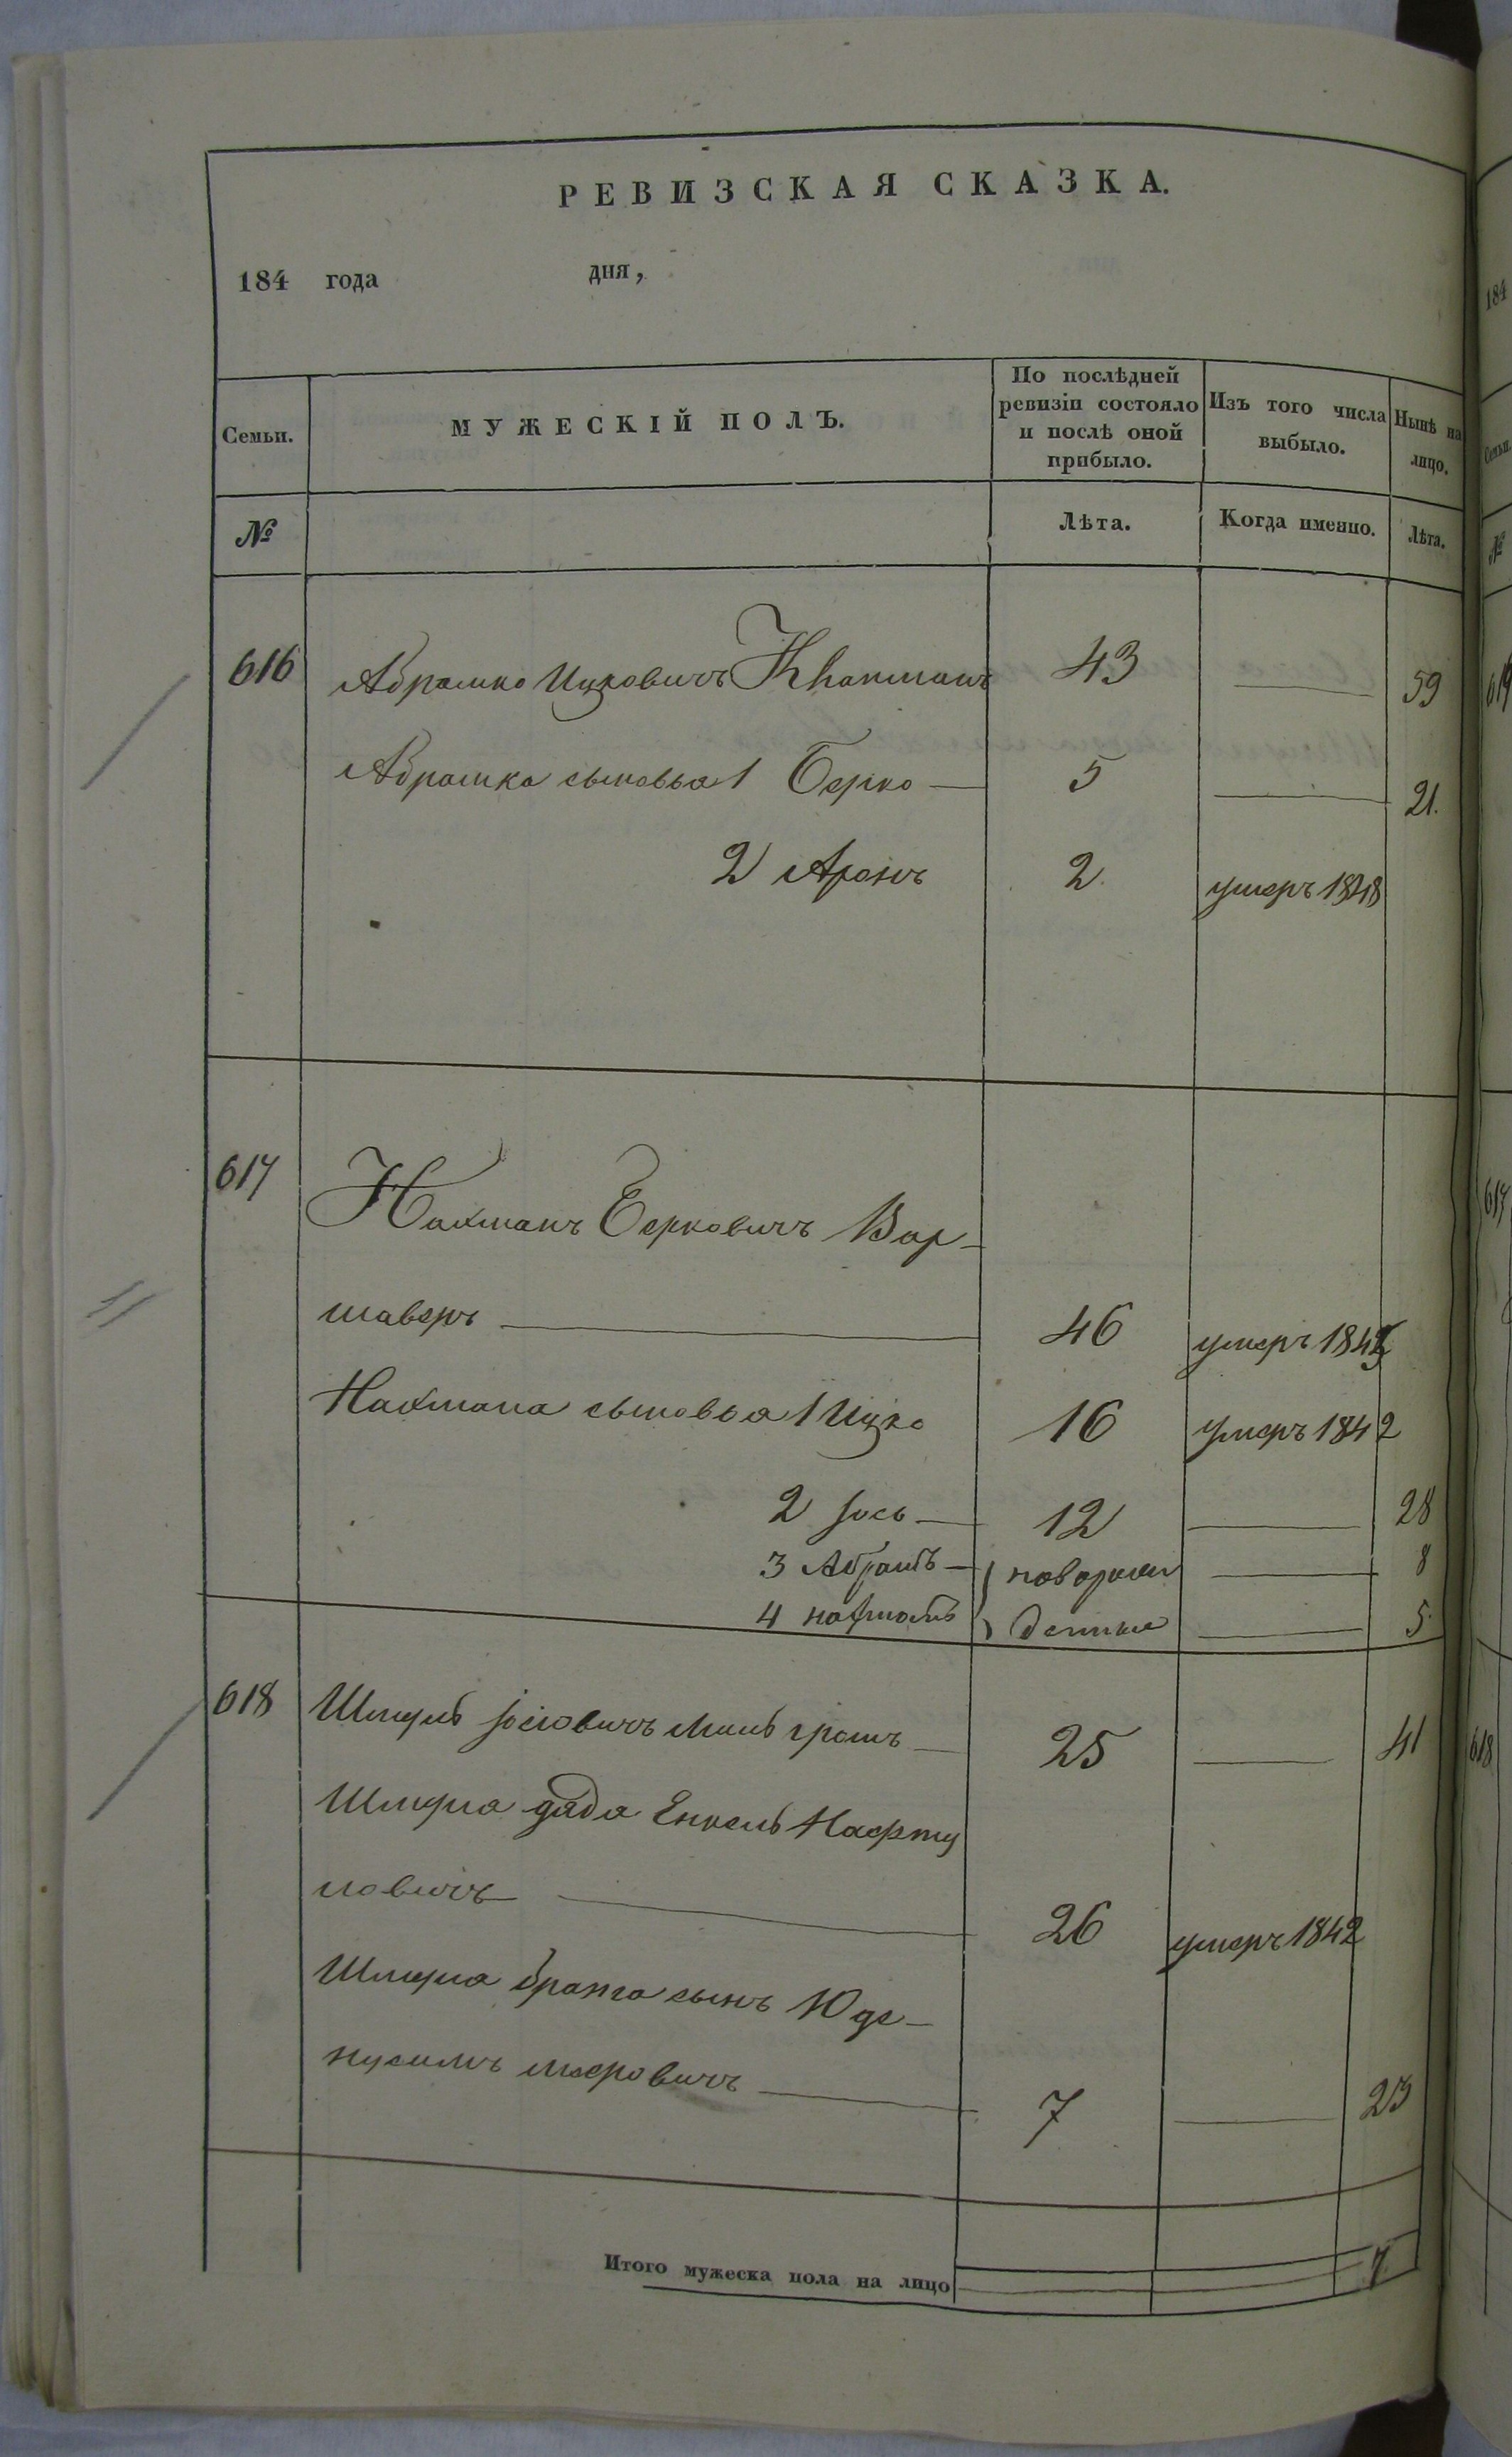 РЕВИЗСКАЯ СКАЗКА.
184 года дня,
Семьи. МУЖЕСКІЙ ПОЛЪ. По послѣдней ревизіи состояло и послѣ оной прибыло. Изъ того числа выбыло. Нынѣ на лицо.
№ Лѣта. Когда именно. Лѣта.
616 Абрамко Ицковичъ 43 — 59
Абрамка сыновья 1 Берко — 5 — 21.
2 Аронъ 2 умеръ 1848
617 Нахманъ Берковичъ Вар-
шаверъ — 46 умеръ 1845
Нахмана сыновья 1 Ицко 16 умеръ 1842
2 Іось — 12 — 28
3 Абрамъ — новорож — 8
4 денные — 5
618 Шмуль Іосіовичъ Мильгромъ — 25 — 41
Шмуля дядя Енкель Нафту
ловичъ — 26 умеръ 1842
Шмуля брата сынъ Юде-
нусимъ Мееровичъ — 7 — 23
Итого мужеска пола на лицо 7
184
Семьи.
№
617
618